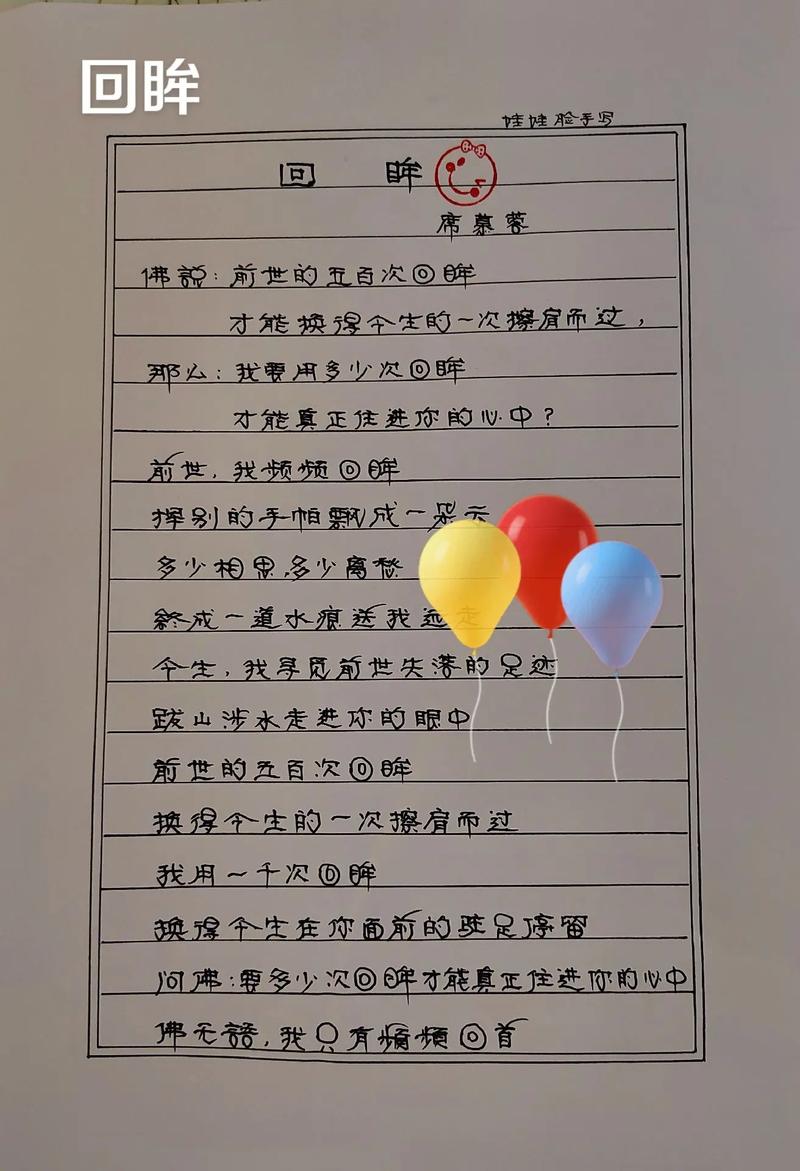 回眸
娃娃脸手写
回 眸
席慕蓉
佛説：前世的五百次回眸
才能换得今生的一次擦肩而过，
那么：我要用多少次回眸
才能真正住进你的心中？
前世，我频频回眸
挥别的手帕飘成一朵云
多少相思，多少离愁
终成一道水痕送我远走
今生，我寻觅前世失落的足迹
跋山涉水走进你的眼中
前世的五百次回眸
换得今生的一次擦肩而过
我用一千次回眸
换得今生在你面前的驻足停留
问佛：要多少次回眸才能真正住进你的心中
佛无語，我只有頻頻回首